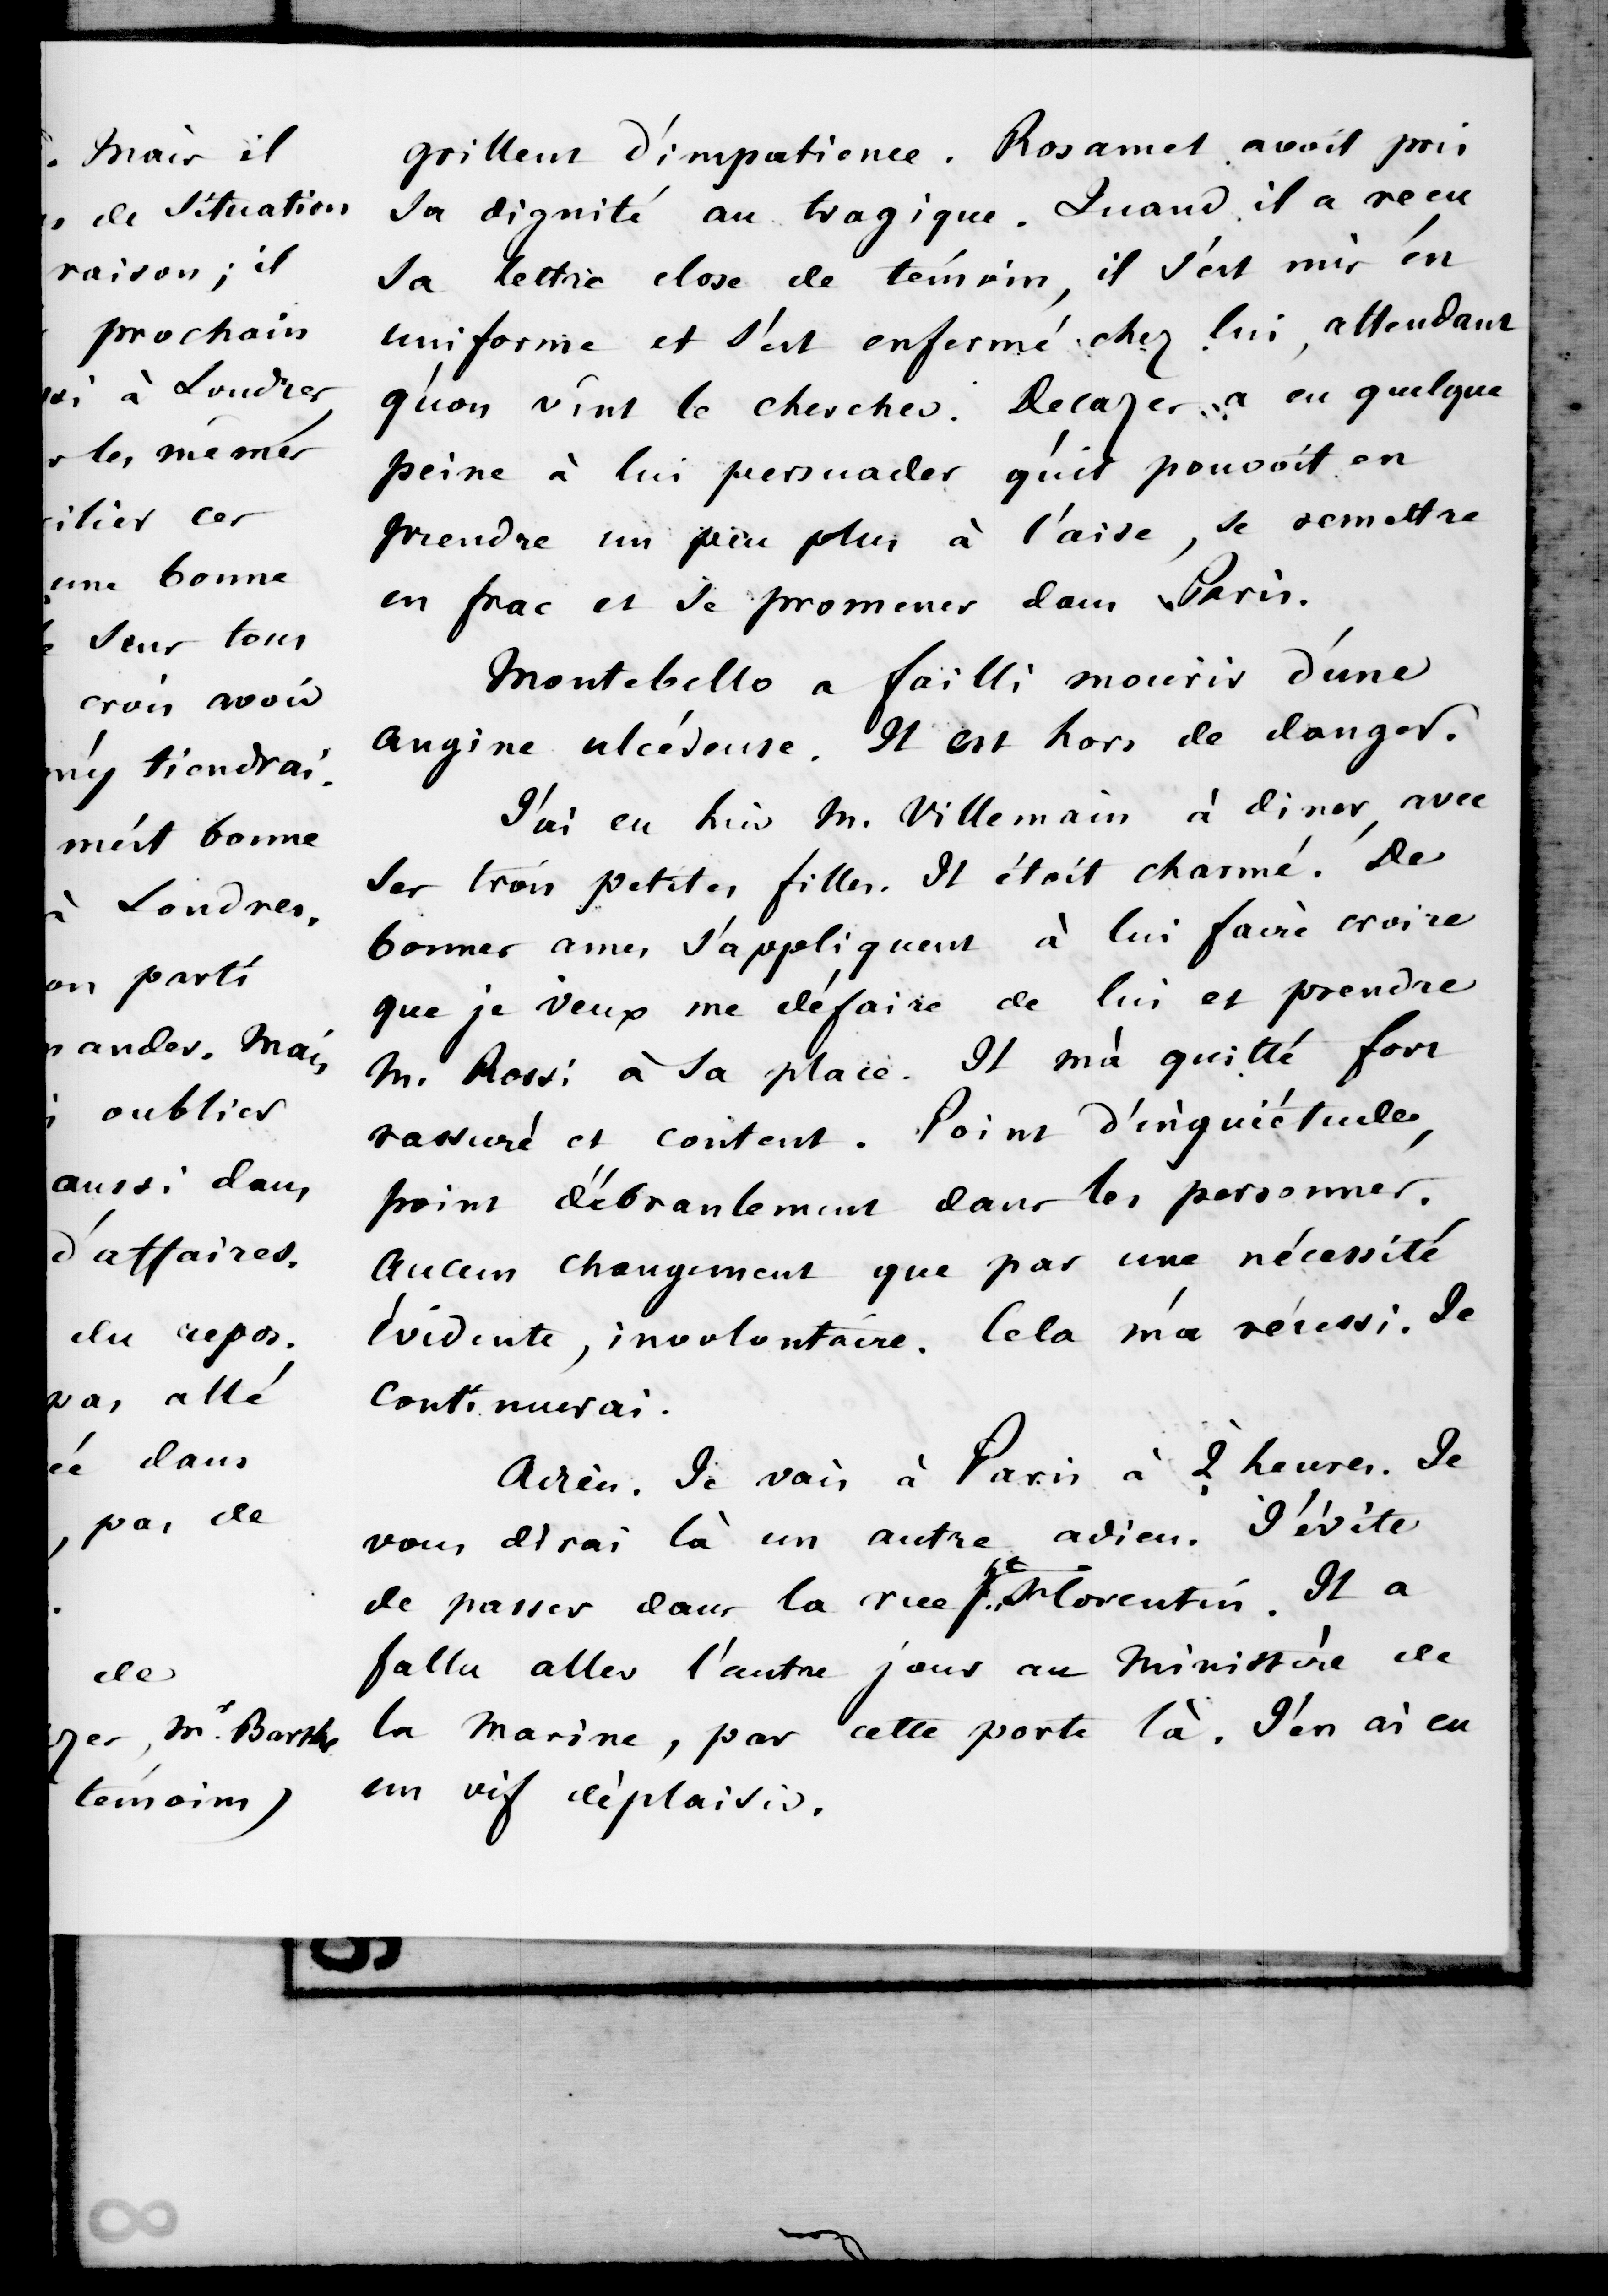 . Mais il
de Situation
raison ; il
prochain
à Londres
les mêmes
ces
une bonne
Seur tous
crois avoir
m'y tiendrai.
m'est bonne
à Londres.
on parti
Mais
oublier
aussi dans
d'affaires.
du repos.
pas allé
dans
, pas de
de
, Mr. Barthe
temoins)
grillent d'impatience. Rosamel avoit pris
Sa dignité au tragique. Quand il a recu
Sa lettre close de témoin, il S'est mis en
uniforme et S'est enfermé chez lui, attendant
qu'on vînt le chercher. Decazes a eu quelque
peine à lui persuader qu'il pouvoit en
prendre un peu plus à l'aise, se remettre
en frac et se promener dans Paris.
Montebello a failli mourir d'une
angine ulcéreuse. Il est hors de danger.
J'ai eu hier M. Villemain à diner, avec
Ses trois petites filles. Il étoit charmé. De
bonnes ames S'appliquent à lui faire croire
que je veux me défaire de lui et prendre
M. Rossi à Sa place. Il m'a quitté fort
rassuré et content. Point d'inquiétude,
point d'ébranlement dans les personnes.
Aucun changement que par une nécessité
évidente, involontaire. Cela m'a réussi. Je
continuerai.
Adieu. Je vais à Paris à 2 heures. Je
vous dirai là un autre adieu. J'évite
de passer dans la rue St. Florentin. Il a
fallu aller l'autre jour au Ministère de
la Marine, par cette porte là. J'en ai eu
un vif déplaisir.
8